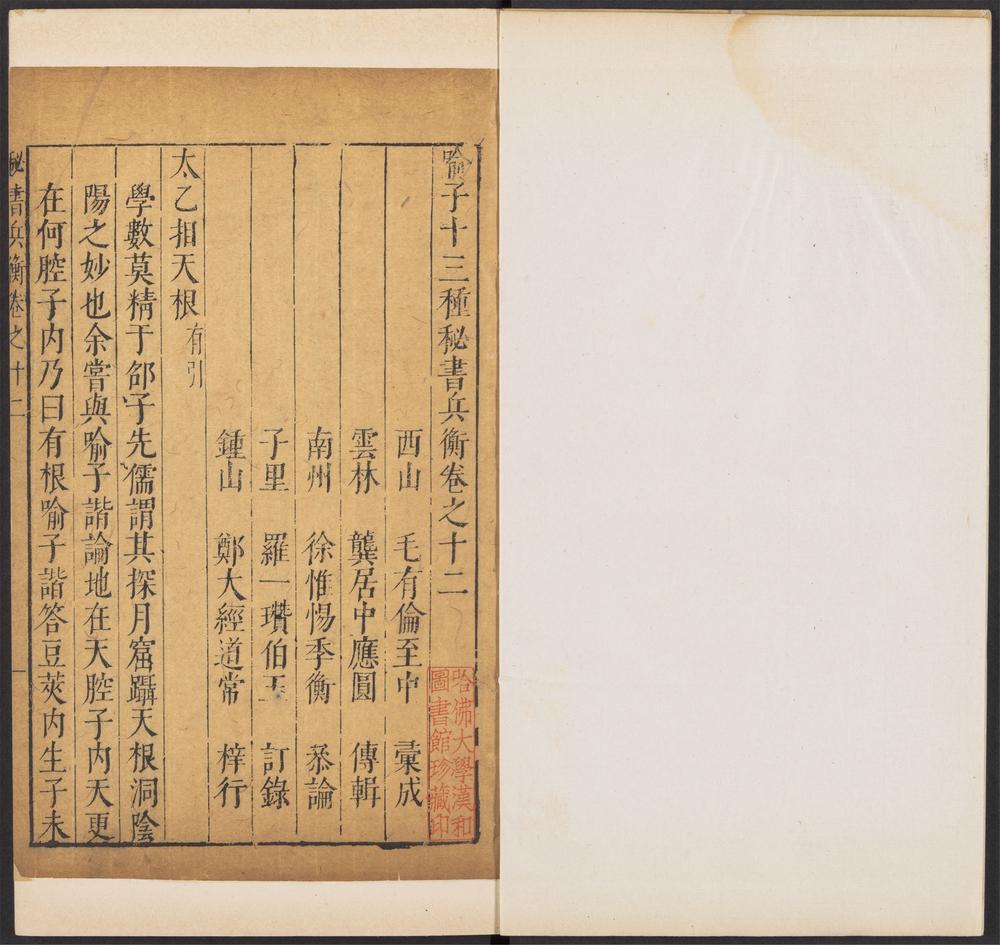 喻子十三種秘書兵衡卷之十二
西山　毛有倫至中　彙成
雲林　龔居中應圓　傳輯
南州　徐惟惕季衡　叅論
子里　羅一瓚伯玉　訂錄
鍾山　鄭大經道常　梓行
太乙捐天根有引
學數莫精于邵子先儒謂其探月窟躡天根洞陰
陽之妙也余嘗與喻子諧論地在天腔子內天更
在何腔子內乃曰有根喻子諧答豆莢内生子未
秘書兵衡卷之十二
一
哈佛大學漢和
圖書館珍藏印